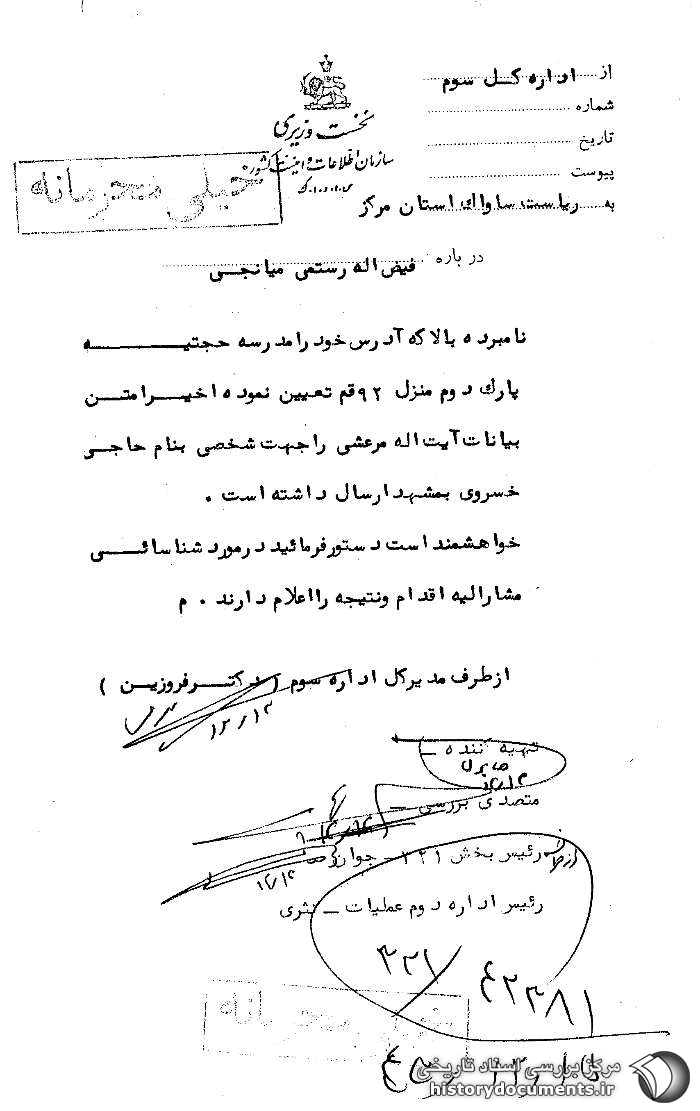 از اداره کل سوم
شماره
تاریخ
پیوست
نخست وزیری
سازمان اطلاعات و امنیت کشور
س.ا.و.ا.ک
خیلی محرمانه
به ریاست ساواک استان مرکز
درباره فیض اله رستمی میانجی
نامبرده بالا که آدرس خود را مدرسه حجتیه
پارک دوم منزل ۹۲ قم تعیین نموده اخیرا متن
بیانات آیت اله مرعشی را جهت شخصی بنام حاجر
خسروی بمشهد ارسال داشته است .
خواهشمند است دستور فرمائید در مورد شناسائی
مشارالیه اقدام و نتیجه را اعلام دارند . م
از طرف مدیر کل اداره سوم ( دکتر فروزین )
۱۲/۱۳
تهیه کننده –
متصدی بررسی –
رئیس بخش ۳۲۱ – جوان
۱۲/۱۴
رئیس اداره دوم عملیات – نثری
۳۲۱/
۴۲۳۸۱
خیلی محرمانه
مرکز بررسی اسناد تاریخی
historydocuments.ir